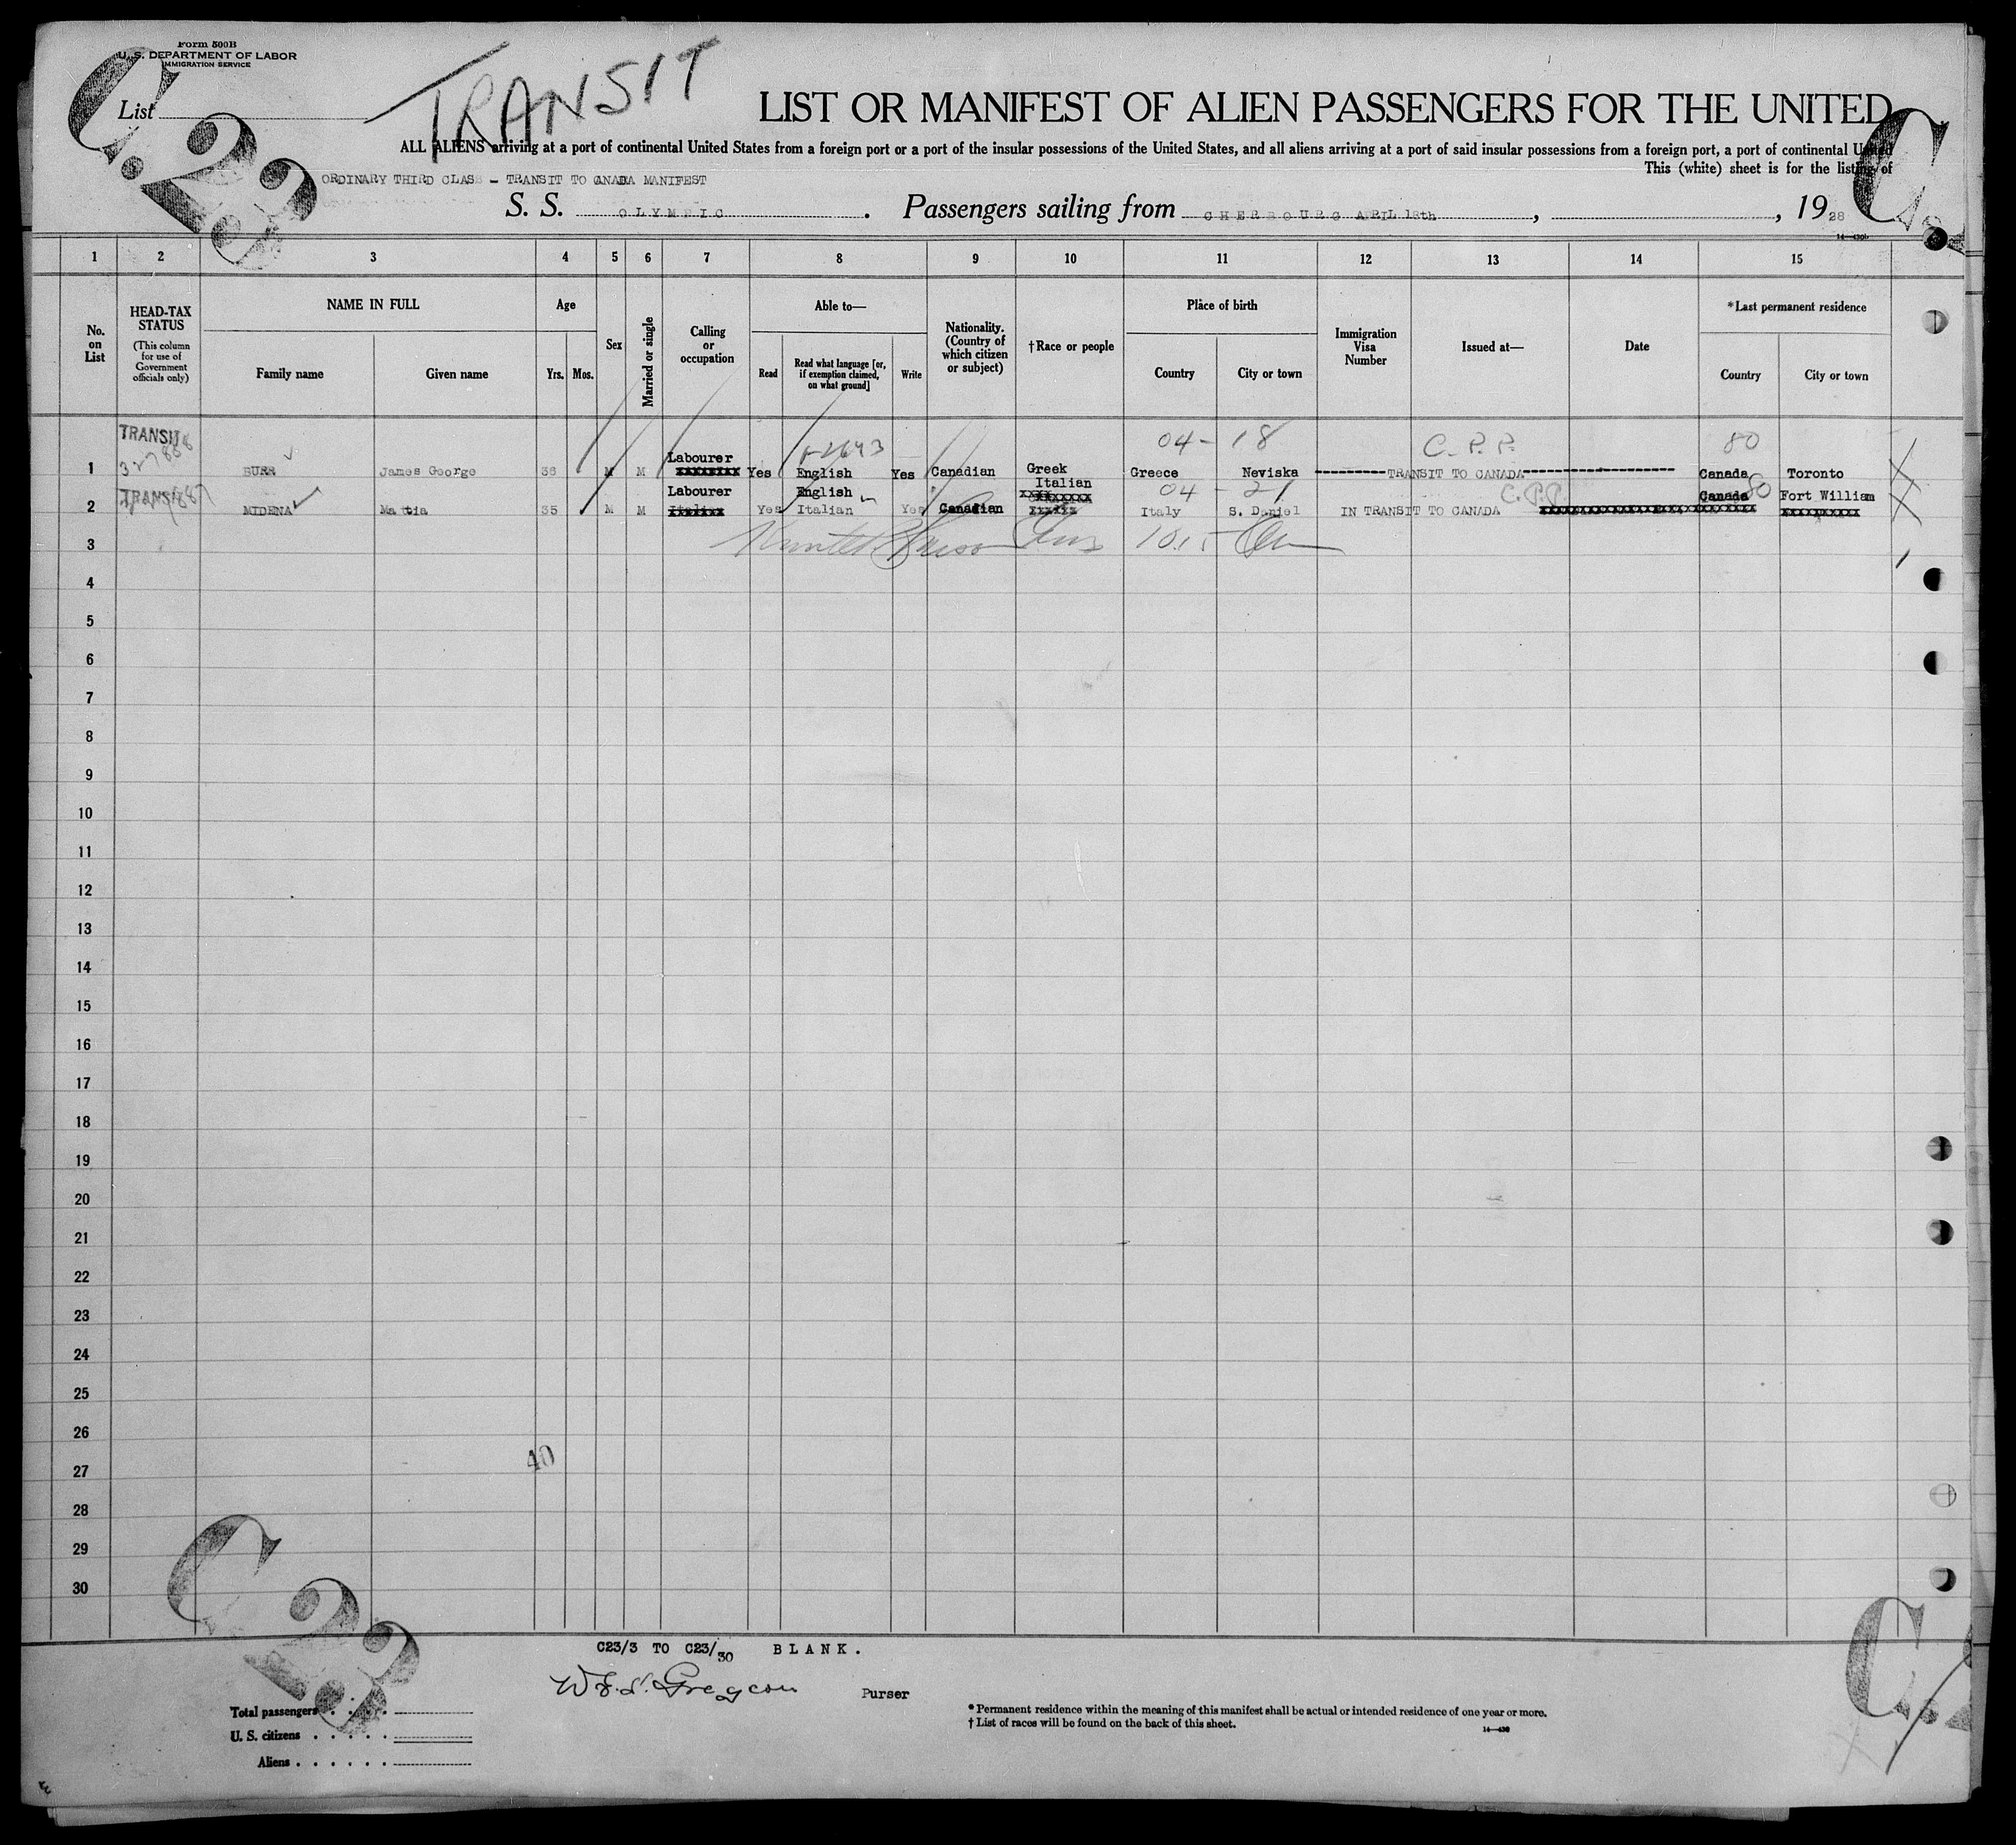 Form 500B
U. S. DEPARTMENT OF LABOR
IMMIGRATION SERVICE
TRANSIT
List
LIST OR MANIFEST OF ALIEN PASSENGERS FOR THE UNITED
ALL ALIENS arriving at a port of continental United States from a foreign port or a port of the insular possessions of the United States, and all aliens arriving at a port of said insular possessions from a foreign port, a port of continental United
This (white) sheet is for the listing of
ORDINARY THIRD CLASS - TRANSIT TO CANADA MANIFEST
S. S. OLYMPIC. Passengers sailing from CHERBOURG APRIL 18th, , 1928
1 2 3 4 5 6 7 8 9 10 11 12 13 14 15
No. on List
HEAD-TAX STATUS (This column for use of Government officials only)
NAME IN FULL
Family name Given name
Age
Yrs. Mos.
Sex
Married or single
Calling or occupation
Able to—
Read Read what language [or, if exemption claimed, on what ground] Write
Nationality. (Country of which citizen or subject)
†Race or people
Place of birth
Country City or town
Immigration Visa Number
Issued at—
Date
*Last permanent residence
Country City or town
TRANSIT 04 - 18 C.P.R. 80
1 BURR James George 36 M M Labourer Yes English Yes Canadian Greek Greece Neviska TRANSIT TO CANADA Canada Toronto
TRANSIT 04 - 21 80
2 MIDENA Mattia 35 M M Labourer Yes English Italian Yes Canadian Italian Italy S. Daniel IN TRANSIT TO CANADA Canada Fort William
3
4
5
6
7
8
9
10
11
12
13
14
15
16
17
18
19
20
21
22
23
24
25
26
27
28
29
30
40
C23/3 TO C23/30 BLANK.
Purser
Total passengers
U. S. citizens
Aliens
* Permanent residence within the meaning of this manifest shall be actual or intended residence of one year or more.
† List of races will be found on the back of this sheet.